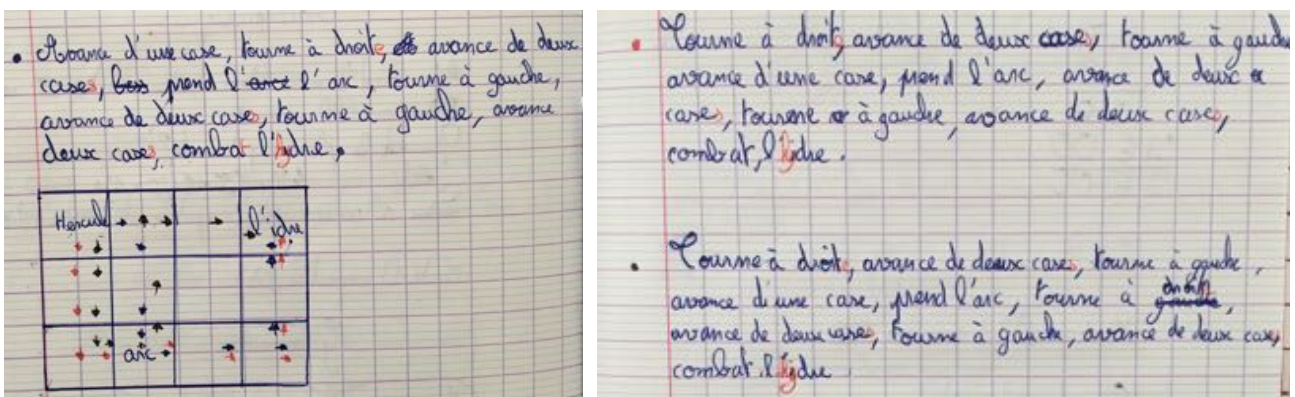 Avance d'une case, tourne à droite, avance de deux
cases, prend l'arc l'arc, tourne à gauche,
avance de deux cases, tourne à gauche, avance
deux cases, combat l'hydre,
Hercule
l'idre
arc
Tourne à droite, avance de deux cases, tourne à gauche
avance d'une case, prend l'arc, avance de deux
cases, tourne à gauche, avance de deux cases,
combat, l'hydre.
Tourne à droite, avance de deux cases, tourne à gauche,
avance d'une case, prend l'arc, tourne à gauche droite,
avance de deux cases, tourne à gauche, avance de deux cases,
combat l'hydre